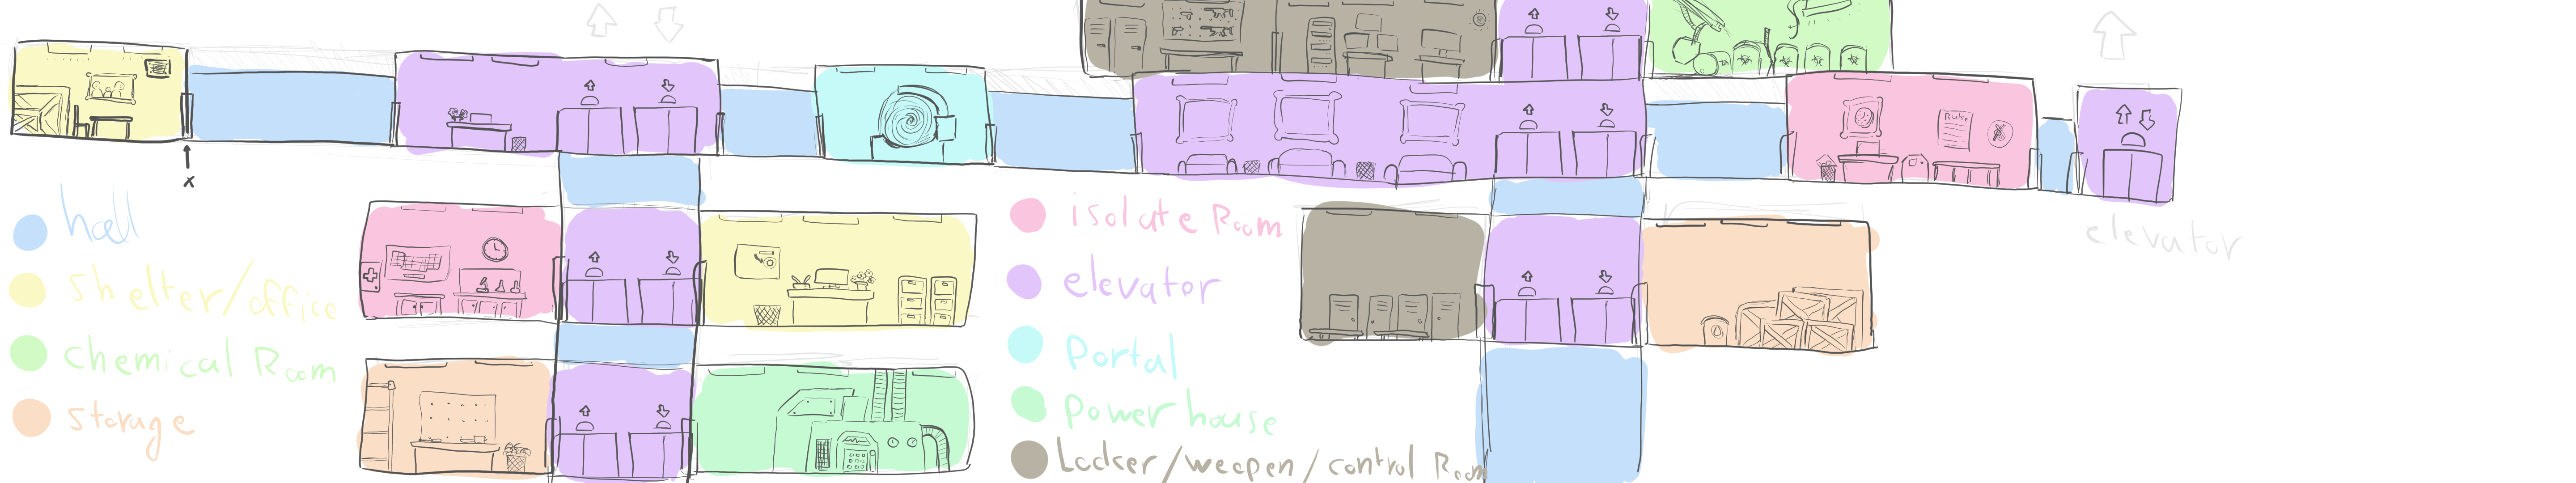 Rules
x
hall
shelter/office
chemical Room
storage
isolate Room
elevator
Portal
power house
Locker/weapen/control Room
elevator